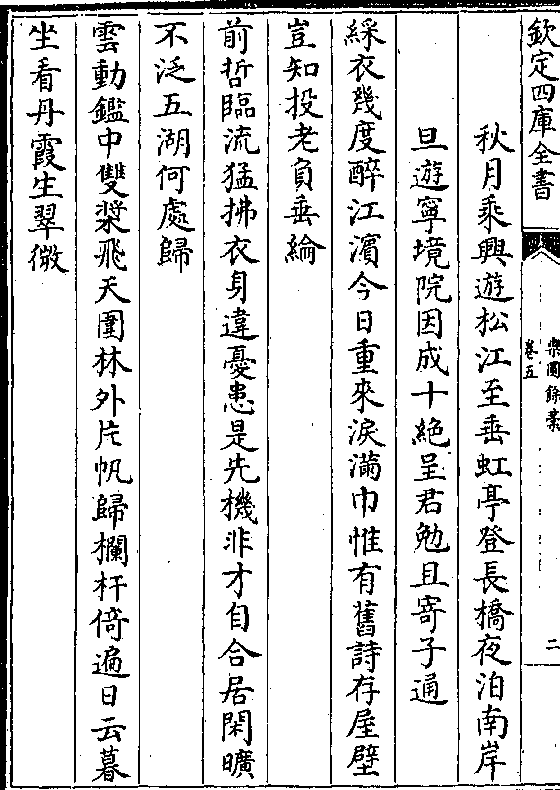 欽定四庫全書
樂圃餘藁
卷五
二
秋月乘興遊松江至垂虹亭登長橋夜泊南岸
旦遊寧境院因成十絶呈君勉且寄子通
綵衣幾度醉江濵今日重來淚滿巾惟有舊詩存屋壁
豈知投老負垂綸
前哲臨流猛拂衣身違憂患是先機非才自合居閑曠
不泛五湖何處歸
雲動鑑中雙槳飛天圍林外片帆歸欄杆倚遍日云暮
坐看丹霞生翠微